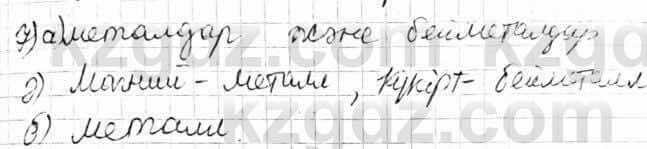 7) а) металдар және бейметалдар
ә) Магний - металл, күкірт - бейметалл
б) металл.
kzgdz.com